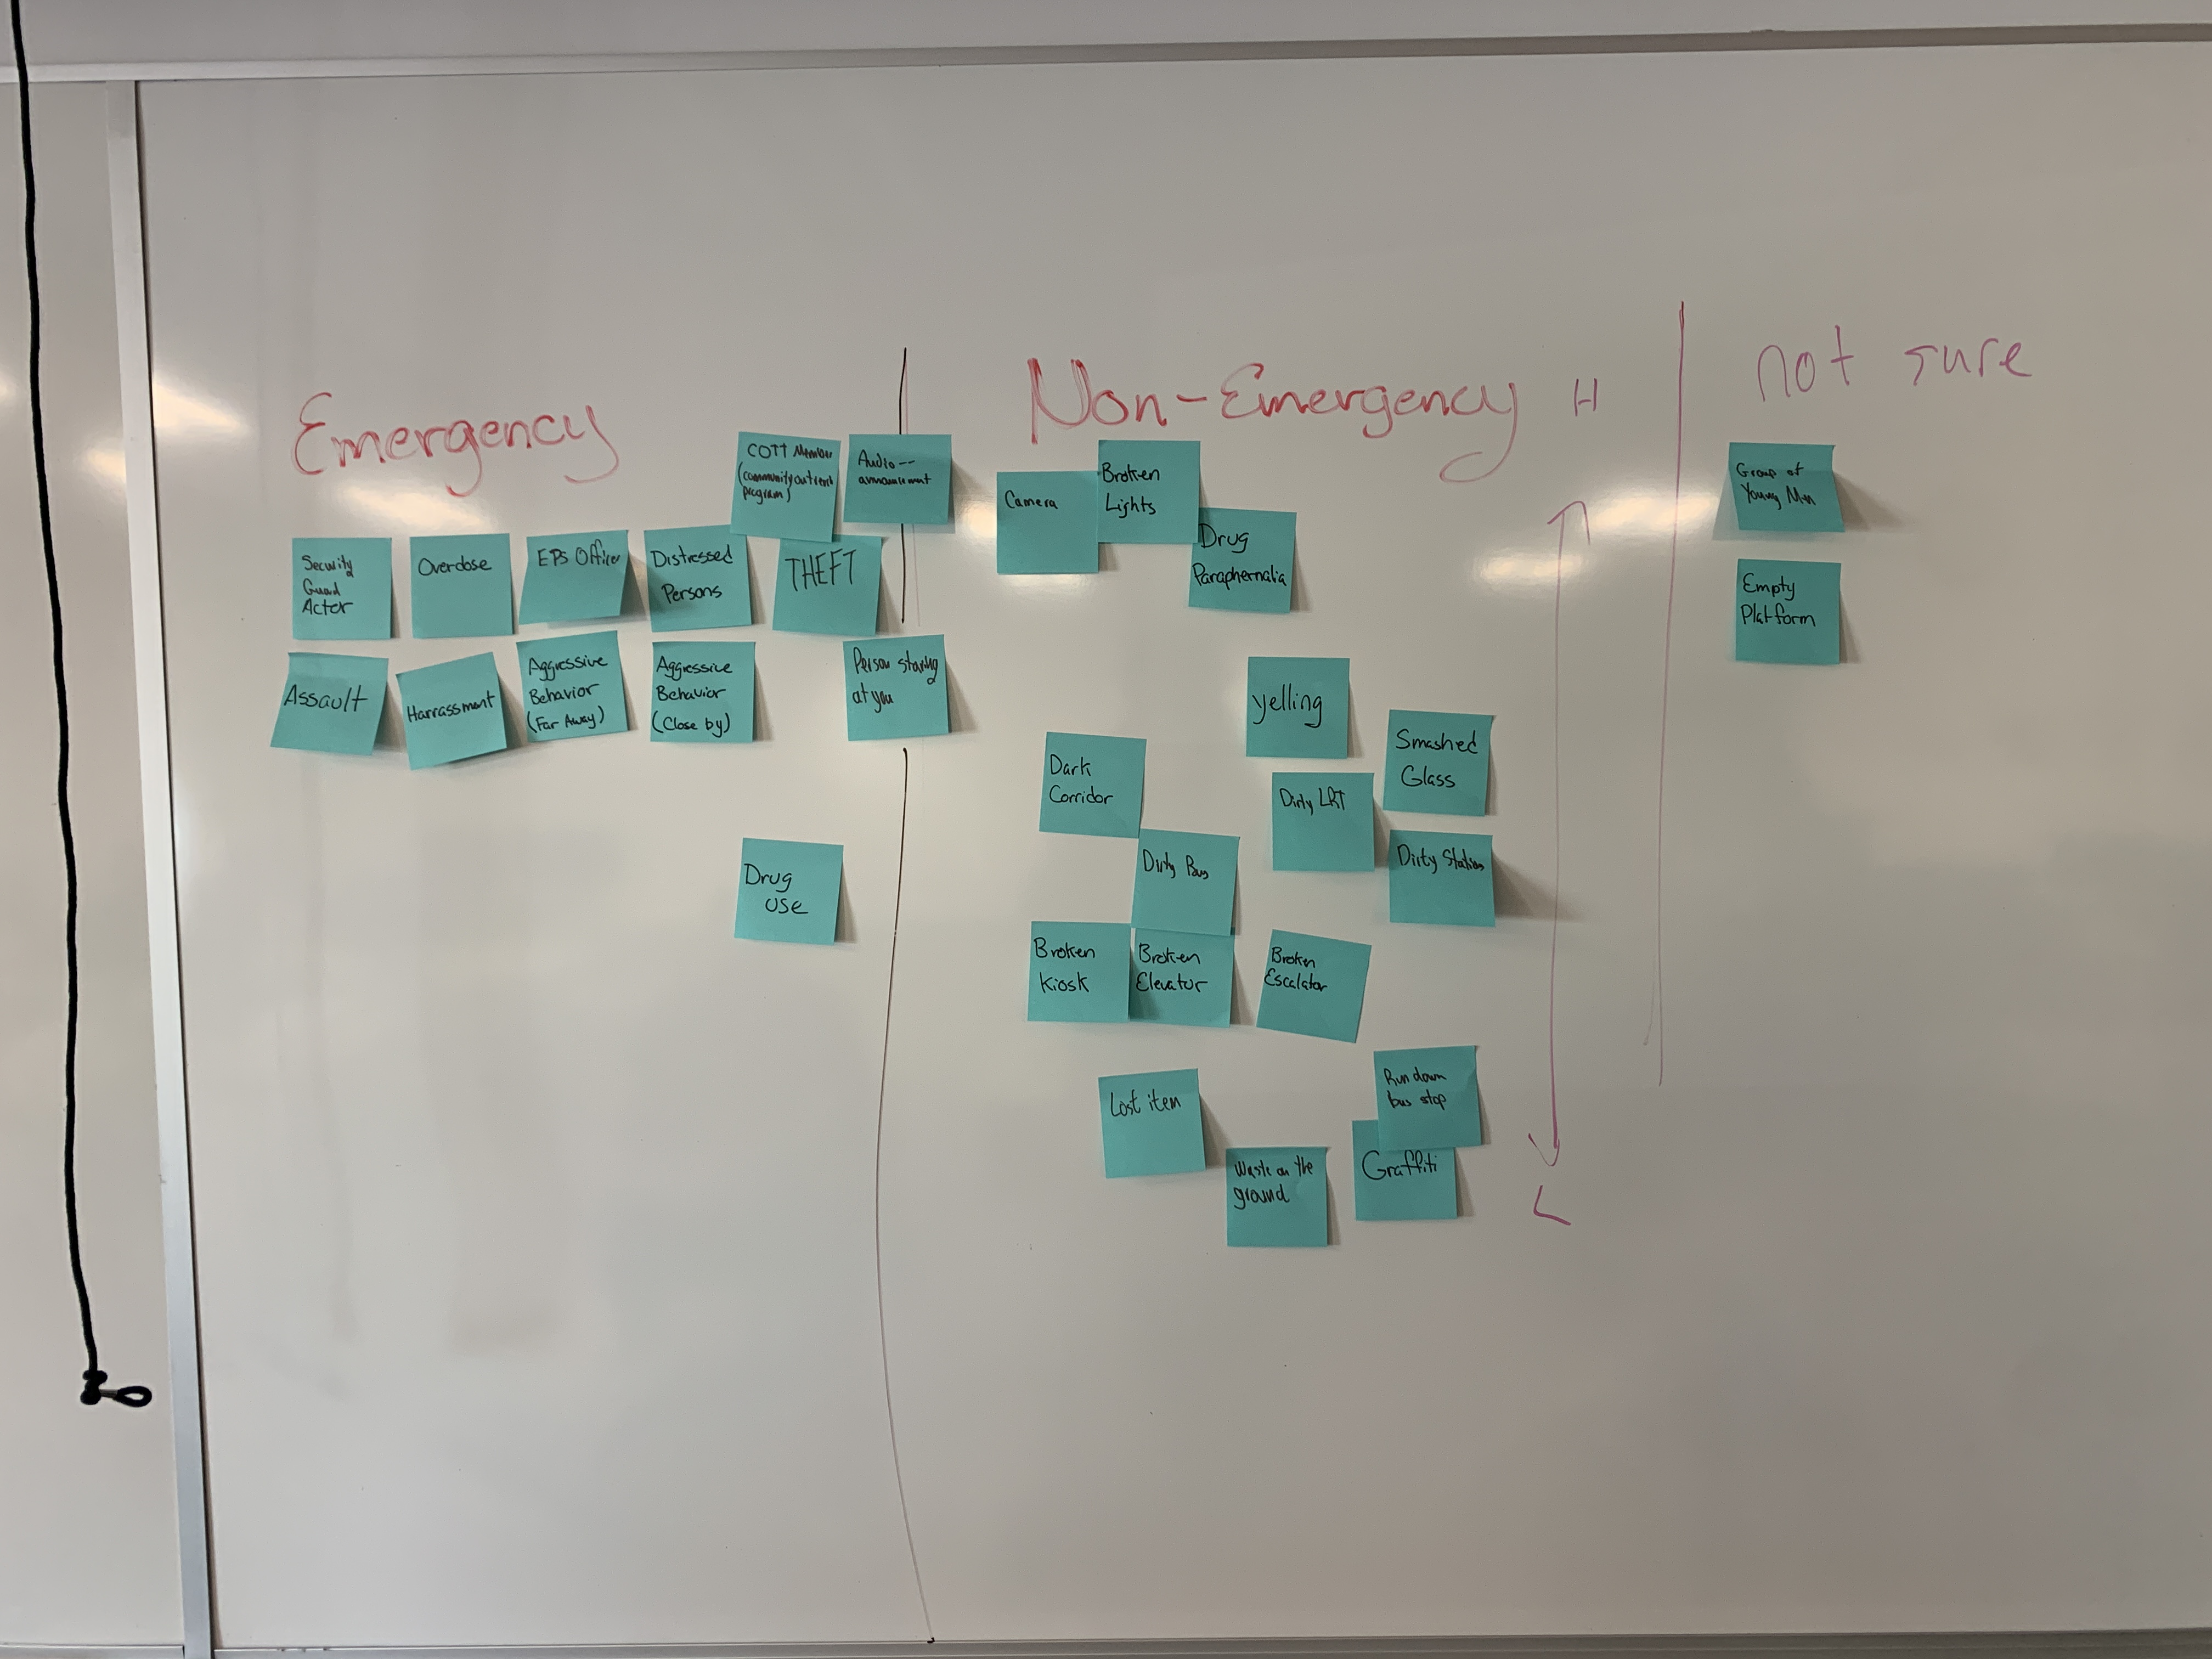 Emergency
Non-Emergency
H
not sure
COTT Member
(community outreach
program)
Audio--
announcement
Security
Guard
Actor
Overdose
EPS Officer
Distressed
Persons
THEFT
Assault
Harrassment
Aggressive
Behavior
(Far Away)
Aggressive
Behavior
(Close by)
Person staring
at you
Drug
use
Camera
Broken
Lights
Drug
Paraphernalia
yelling
Smashed
Glass
Dark
Corridor
Dirty LRT
Dirty Bus
Dirty Station
Broken
Kiosk
Broken
Elevator
Broken
Escalator
Lost item
Run down
bus stop
Waste on the
ground
Graffiti
L
Group of
Young Men
Empty
Platform